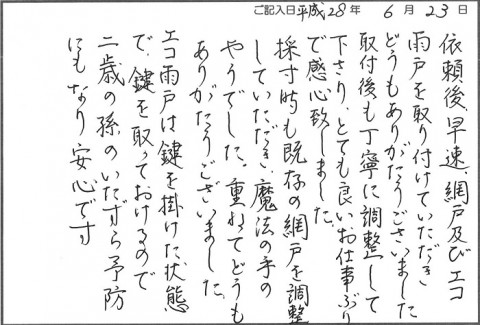 ご記入日 平成28年 6月23日
依頼後、早速、網戸及びエコ
雨戸を取り付けていただき
どうもありがたうございました
取付後も丁寧に調整して
下さり、とても良いお仕事ぶり
で感心致しました。
採寸時も既存の網戸を調整
していただき、魔法の手の
やうでした。重ねてどうも
ありがたうございました。
エコ雨戸は鍵を掛けた状態
で、鍵を取っておけるので
二歳の孫のいたずら予防
にもなり安心です